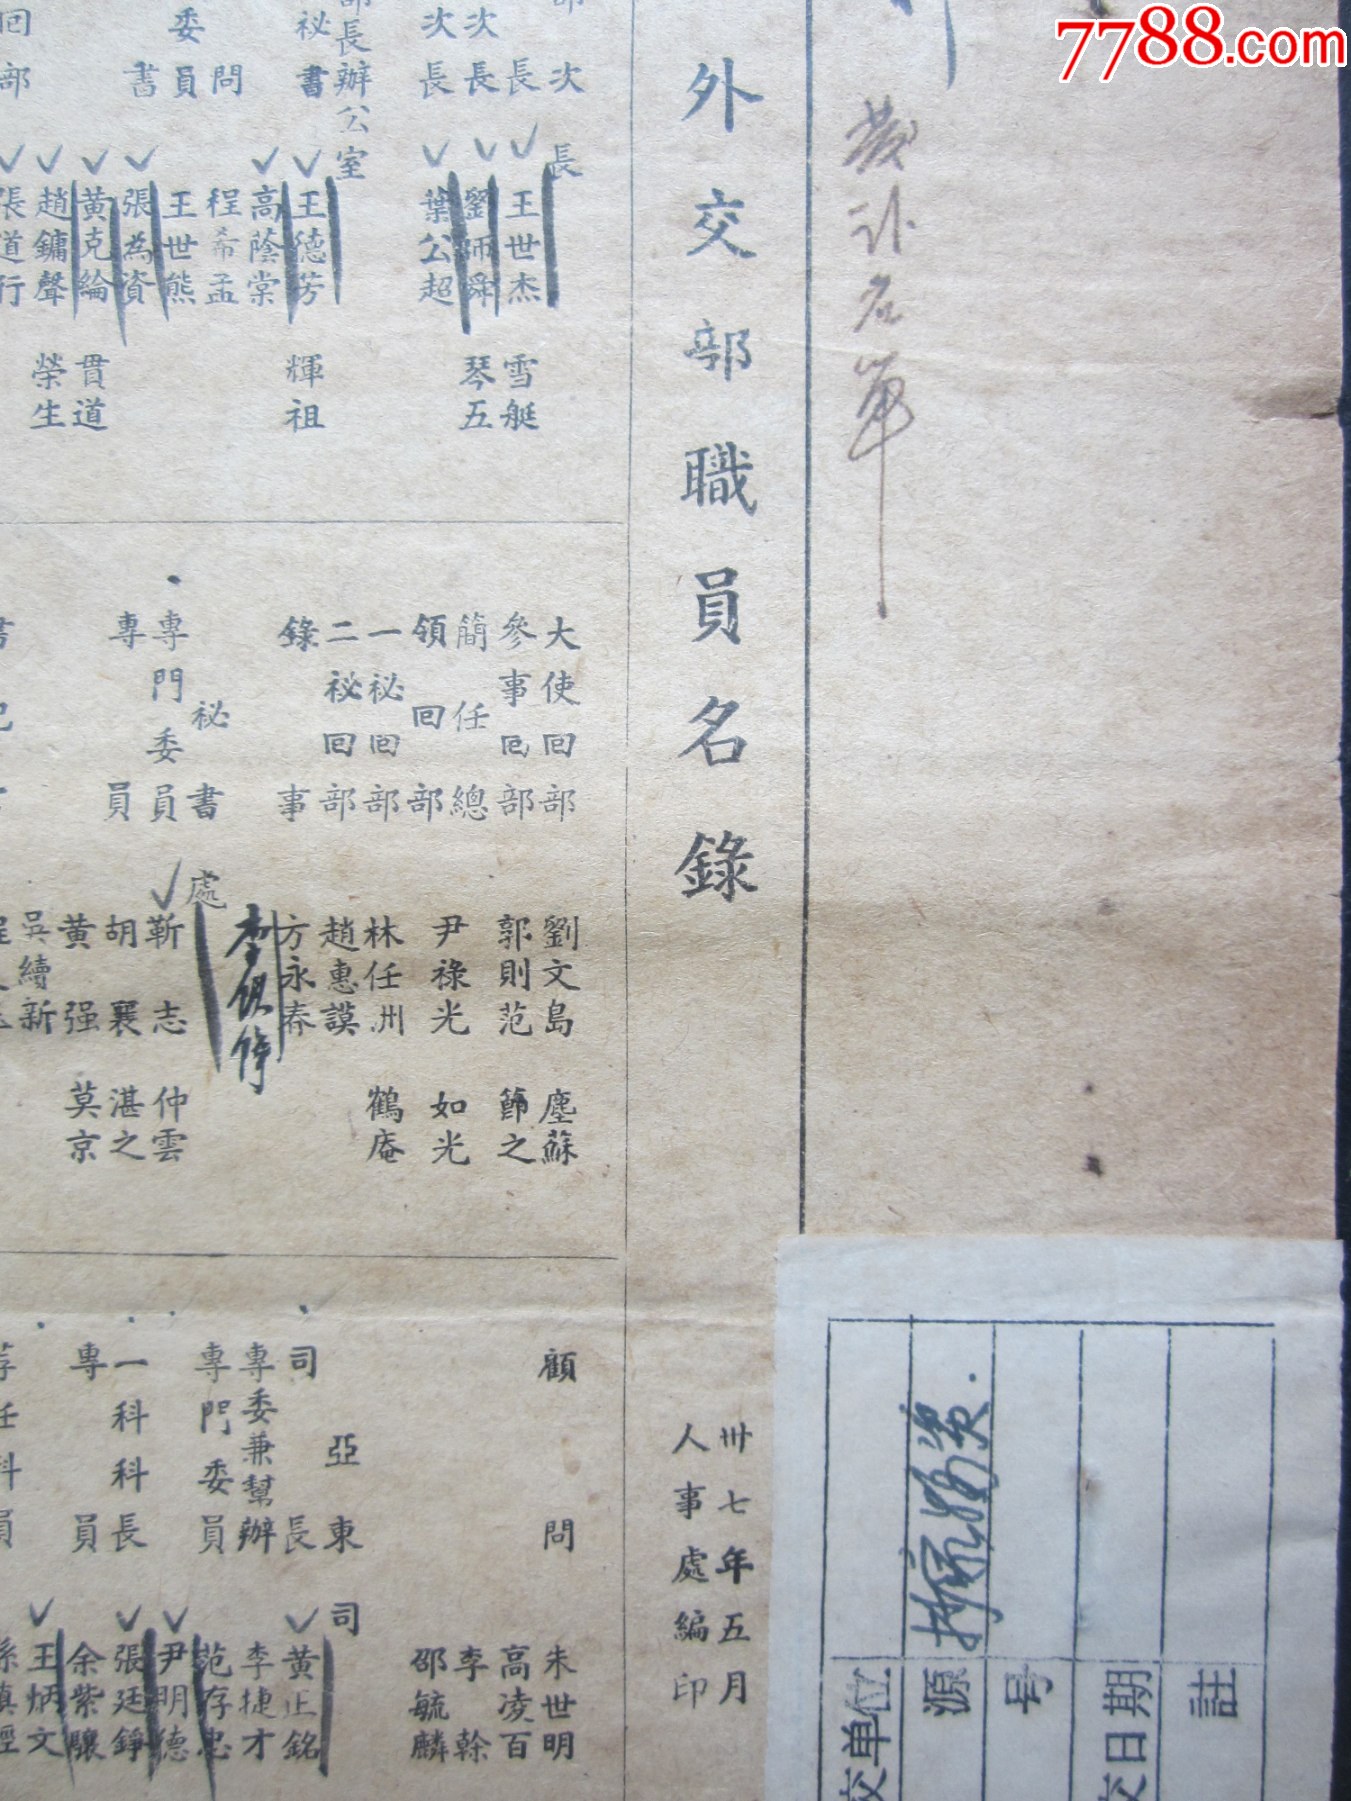 7788.com
外交部職員名錄
卅七年五月
人事處編印
部次長
長 王世杰 雪艇
次長 劉師舜 琴五
次長 葉公超
部長辦公室
祕書 王德芳 輝祖
高蔭棠
問 程希孟
委員 王世熊
書 張為資
黃克綸 貫道
趙鏞聲 榮生
回部 張道行
大使回部 劉文島 塵蘇
參事回部 郭則范 節之
簡任總領回部 尹祿光 如光
一祕回部 林任州 鶴庵
二祕回部 趙惠謨
錄事 方永春
祕書處
專門委員 靳志 仲雲
專員 胡襄 湛之
黃强 莫京
吳續新
顧問 朱世明
高凌百
李榦
邵毓麟
亞東司
司長 黃正銘
專委兼幫辦 李捷才
專門委員 范存忠
尹明德
一科科長 張廷錚
專員 余紫驤
王炳文
荐任科員
名單
交单位
源
号
交日期
註